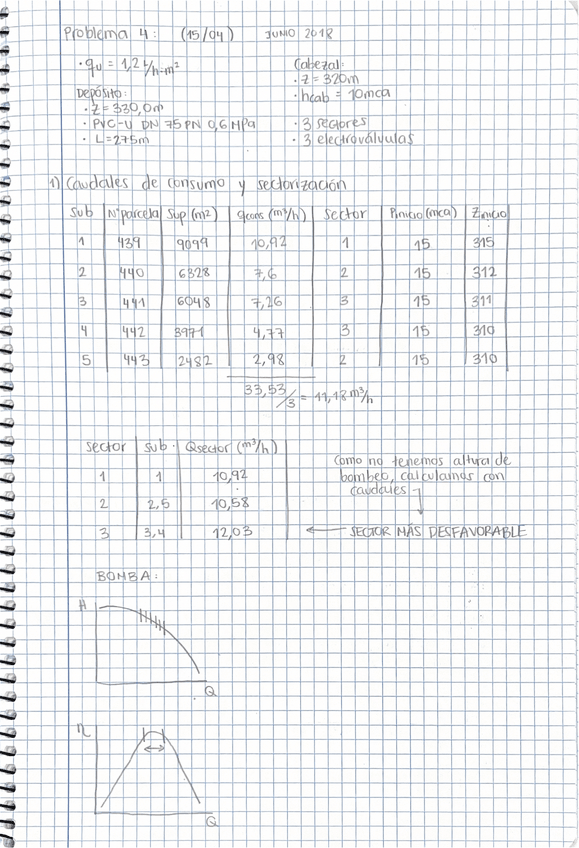 Problema 4: (15/04) JUNIO 2018
· qu = 1,2 L/h·m²
Depósito:
· Z = 330,0m
· PVC-U DN 75 PN 0,6 MPa
· L = 275m
Cabezal:
· Z = 320m
· hcab = 10mca
· 3 sectores
· 3 electroválvulas
1) Caudales de consumo y sectorización
Sub Nº parcela Sup (m2) qcons (m³/h) Sector Pinicio (mca) Zinicio
1 439 9099 10,92 1 15 315
2 440 6328 7,6 2 15 312
3 441 6048 7,26 3 15 311
4 442 3971 4,77 3 15 310
5 443 2482 2,98 2 15 310
33,53/3 = 11,18 m³/h
Sector Sub. Qsector (m³/h)
1 1 10,92
2 2,5 10,58
3 3,4 12,03 ← SECTOR MÁS DESFAVORABLE
Como no tenemos altura de
bombeo, calculamos con
caudales
BOMBA:
H
Q
η
Q